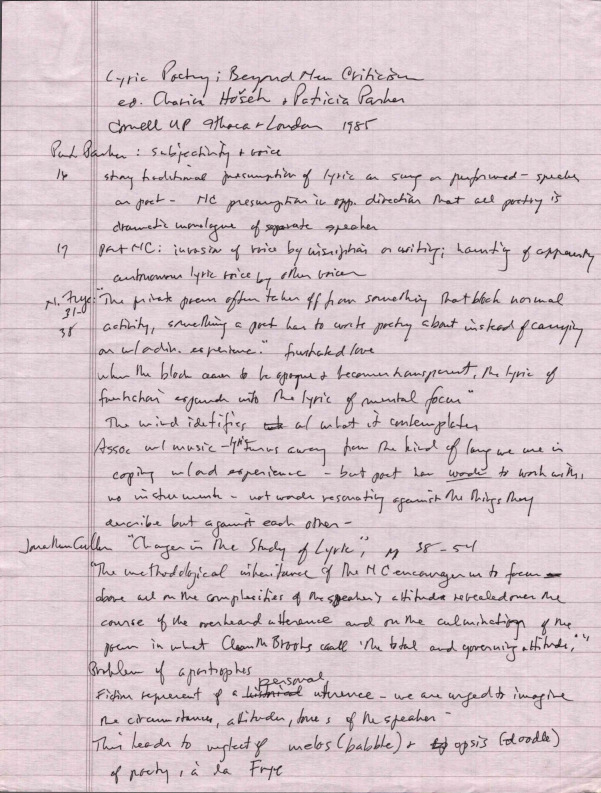 Lyric Poetry: Beyond New Criticism
ed. Chaviva Hošek + Patricia Parker
Cornell UP Ithaca + London 1985
Parker: subjectivity + voice
16 strong traditional presumption of lyric as sung or performed - speaker
as poet - NC presumption in opp. direction that all poetry is
dramatic monologue of separate speaker
17 post NC: invasion of voice by inscription or writing; haunting of apparently
autonomous lyric voice by other voices
N. Frye: "The private poem often takes off from something that blocks normal
31-
38 activity, something a poet has to write poetry about instead of carrying
on w/ ordin. experience." frustrated love
when the block ceases to be opaque + becomes transparent, the lyric of
frustration expands into the lyric of mental focus"
The mind identifies w/ what it contemplates
Assoc w/ music - lyric turns away from the kind of lang we use in
coping w/ ord experience - but poet has words to work with,
no instruments - not words resonating against the things they
describe but against each other -
Jonathan Culler "Changes in the Study of Lyric", pp 38-54
"The methodological inheritance of the NC encourages us to focus
above all on the complexities of the speaker's attitude revealed over the
course of the overheard utterance and on the culmination of the
poem in what Cleanth Brooks call 'the total and governing attitude.'"
Problem of apostrophes
Fiction represent of a historical personal utterance - we are urged to imagine
the circumstances, attitudes, tones of the speaker -
This leads to neglect of melos (babble) + opsis (doodle)
of poetry, à la Frye